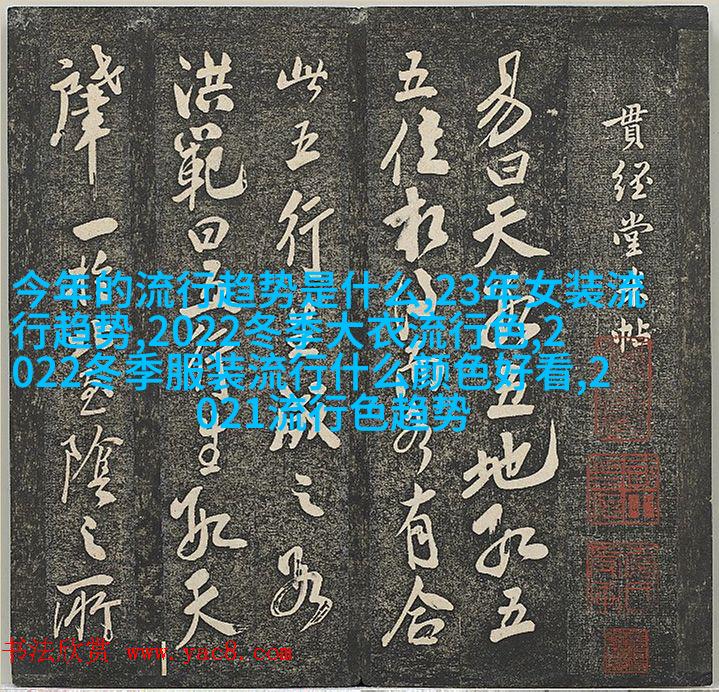 貫經堂米帖
易曰天數五地數五
五位相得而各有合
此五行生成之數
洪範曰五行生數天
一陰之所
今年的流行趋势是什么,23年女装流
行趋势,2022冬季大衣流行色,2
022冬季服装流行什么颜色好看,2
021流行色趋势
书法欣赏 www.yac8.com